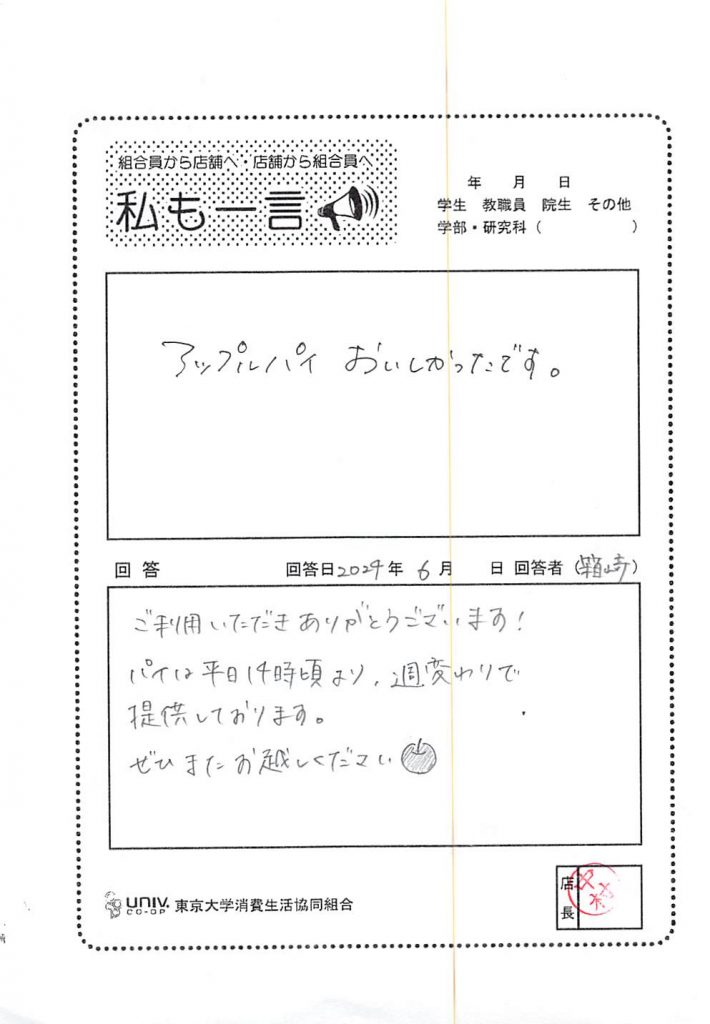 組合員から店舗へ・店舗から組合員へ
私も一言
年 月 日
学生 教職員 院生 その他
学部・研究科( )
アップルパイ おいしかったです。
回答 回答日2024年 6月 日 回答者(箱崎)
ご利用いただきありがとうございます!
パイは平日14時頃より、週変わりで
提供しております。
ぜひまたお越しください
UNIV. CO-OP 東京大学消費生活協同組合
店長
中村